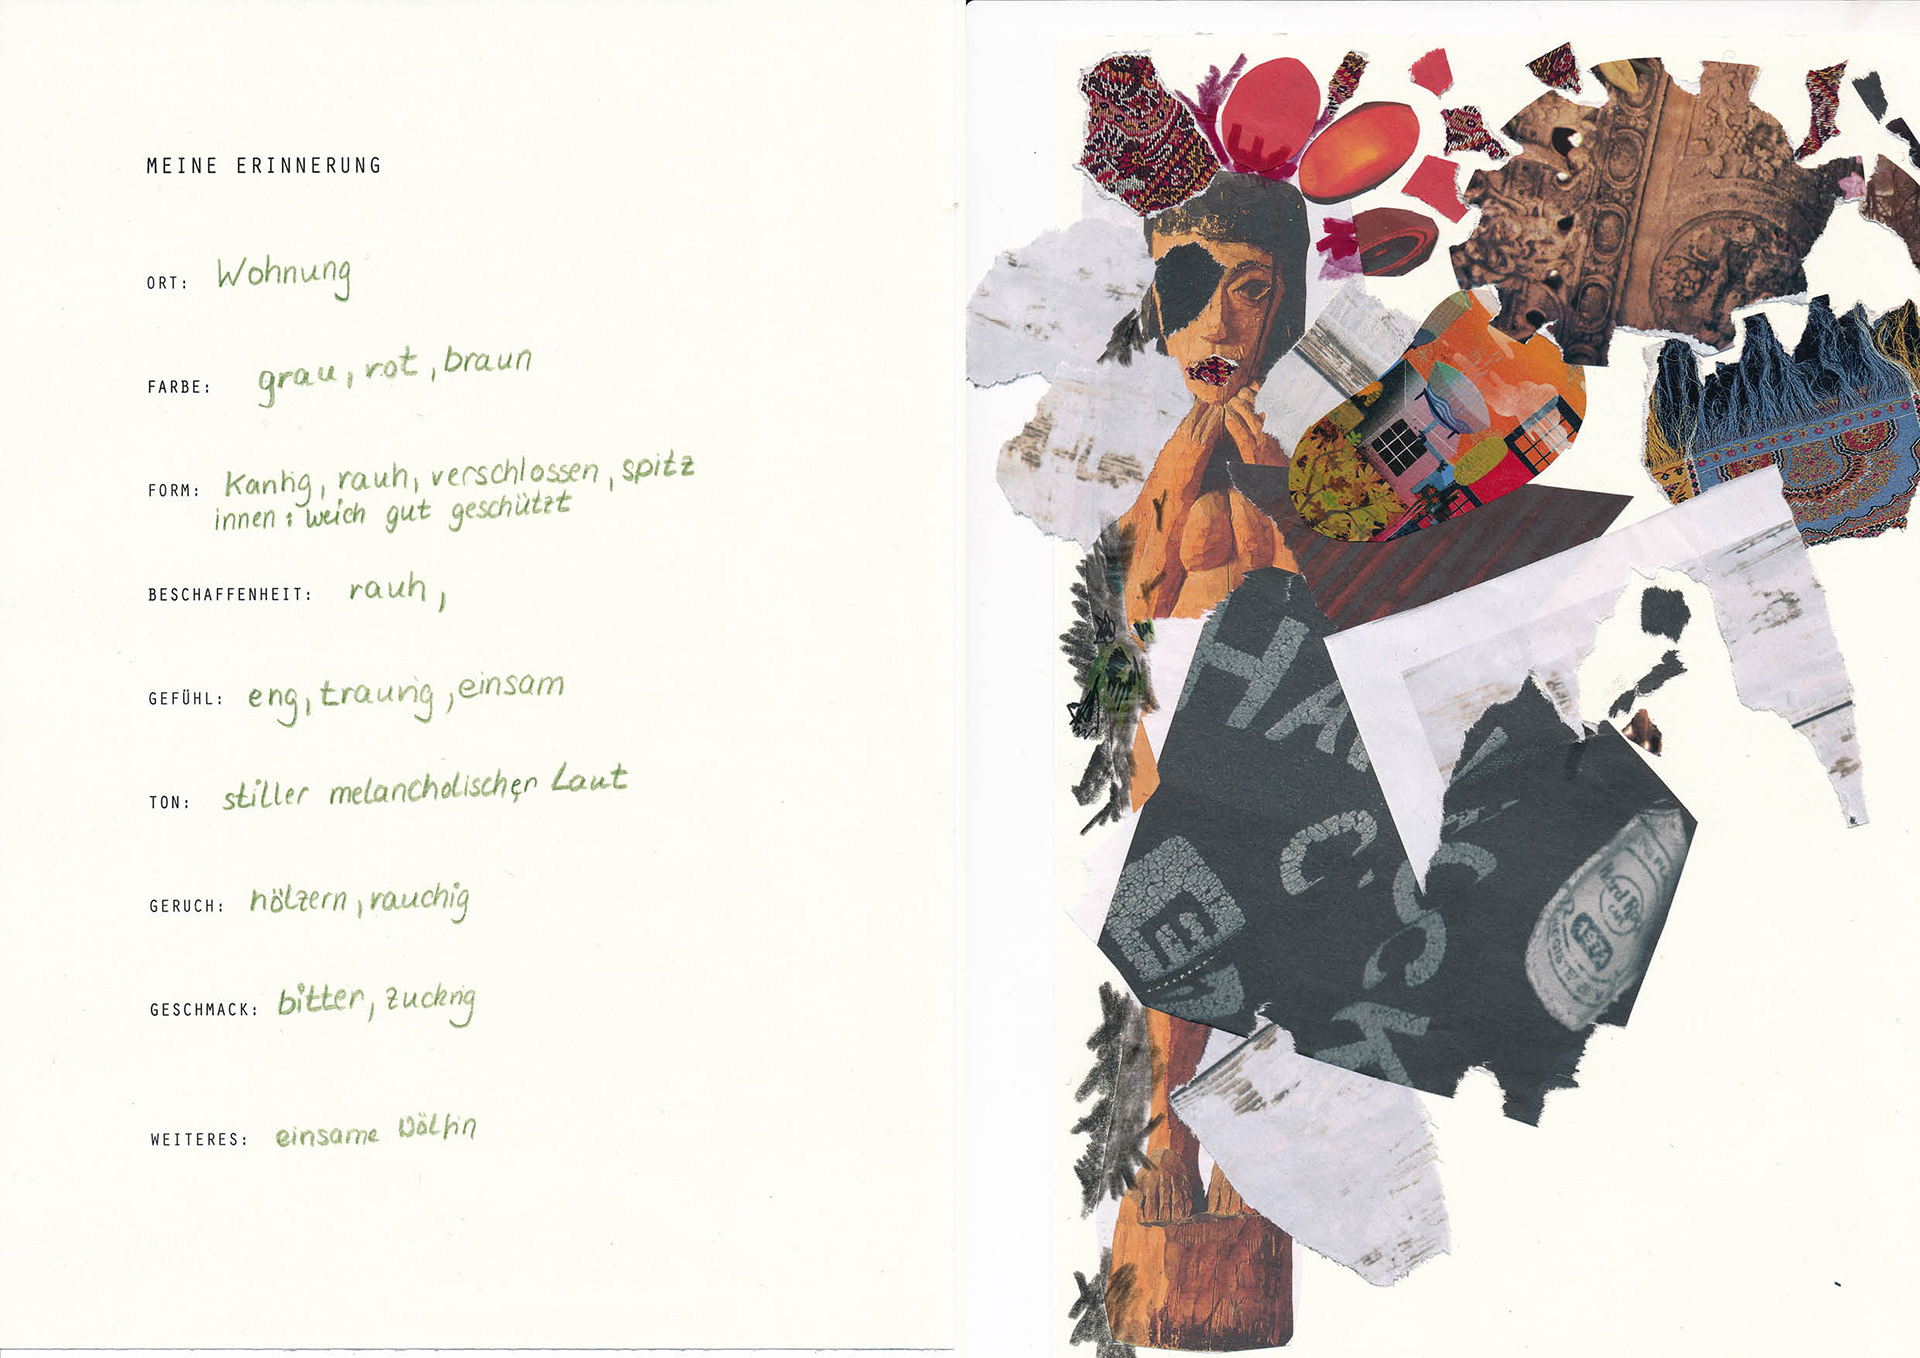 MEINE ERINNERUNG
ORT: Wohnung
FARBE: grau, rot, braun
FORM: Kantig, rauh, verschlossen, spitz
innen: weich gut geschützt
BESCHAFFENHEIT: rauh,
GEFÜHL: eng, traurig, einsam
TON: stiller melancholischer Laut
GERUCH: hölzern, rauchig
GESCHMACK: bitter, zuckrig
WEITERES: einsame Wölfin
Hard Rock
CAFE